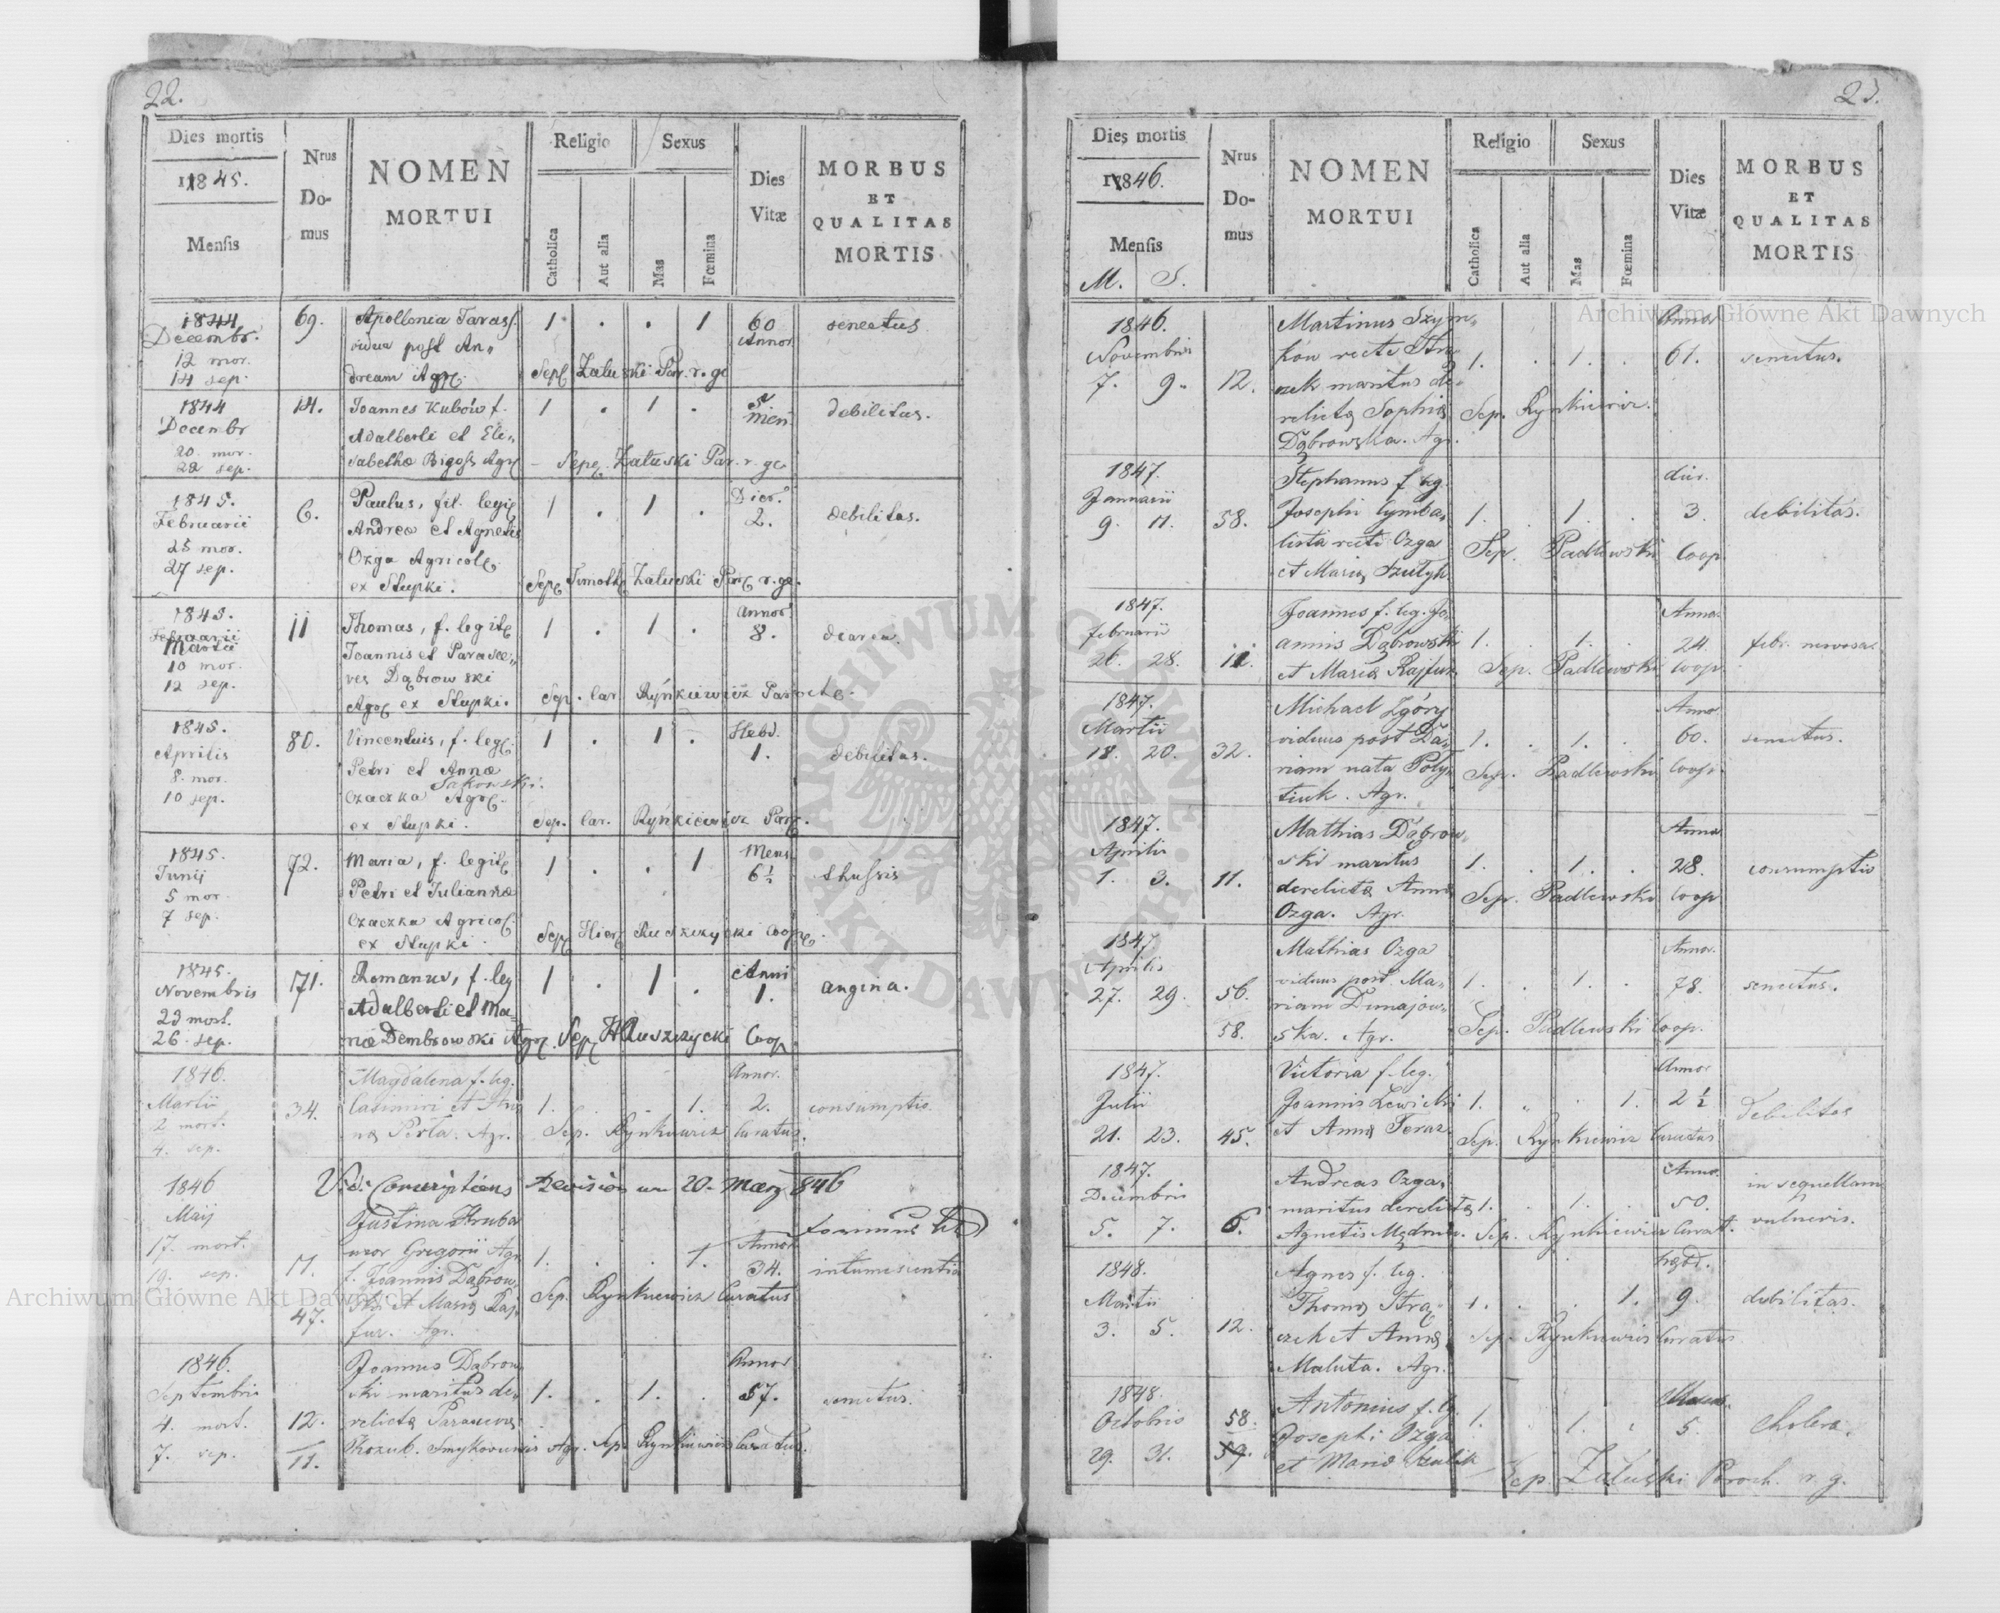 22.
Dies mortis
1845.
Mensis
Nrus Domus
NOMEN
MORTUI
Religio
Catholica
Aut alia
Sexus
Mas
Fœmina
Dies
Vitæ
MORBUS
ET
QUALITAS
MORTIS
1844
Decembr.
12 mor.
14 sep.
69.
Apollonia Taras
vidua post An„
dream Agr.
1 . . 1
60
Annor
senectus
Sep. Załuski Par. r. gc
1844
Decembr
20. mor.
22 sep.
14.
Joannes Kubów f.
Adalberti et Eli„
sabethæ Bigos Agr
1 . 1 .
5
men
debilitas.
Sep. Załuski Par. r. gc
1845.
Februarii
25 mor.
27 sep.
6.
Paulus, fil. legi
Andreæ et Agnetis
Ozga Agricol.
ex Słupki.
1 . 1 .
Dier.
2.
debilitas.
Sep. Timoth Załuski Par. r. gc.
1845.
Februarii
Martii
10 mor.
12 sep.
11
Thomas, f. legit
Joannis et Parasce„
ves Dąbrowski
Agr. ex Słupki.
1 . 1 .
Annor
8.
Sep. Car. Rýnkiewicz Paroch.
1845.
Aprilis
8. mor.
10 sep.
80.
Vincentius, f. leg.
Petri et Annæ
Sakowski.
Czaczka Agr.
ex Słupki.
1 . 1 .
Hebd.
1.
debilitas.
Sep. Car. Rýnkiewicz Par.
1845.
Junij
5 mor.
7 sep.
72.
Maria, f. legit
Petri et Juliannæ
Czaczka Agricol.
ex Słupki.
1 . . 1
Mens
6½
thussis
Sep. Hier. Kuszczycki Coop.
1845.
Novembris
23 mort.
26. sep.
71.
Romanus, f. leg
Adalberti et Ma„
riæ Dembrowski Agr.
1 . 1 .
Anni
1.
angina.
Sep. Coop.
1846.
Martii
2 mort.
4. sep.
34.
Magdalena f. leg.
Casimiri et An
næ Perla. Agr.
1. . . 1.
Annor.
2.
consumptio
Sep. Rynkiewicz Curatus.
Vidi Conscriptions Revision am 20. März 846
1846
Maij
17. mort.
19. sep.
11.
47.
Justina Hruba
uxor Gregorii Agr
f. Joannis Dąbrow„
ski et Mariæ Raj
fur. Agr.
1. . . 1.
Annor
34.
intumiscentia
Sep. Rynkiewicz Curatus
1846.
Septembris
4. mort.
7. sep.
12.
11.
Joannes Dąbrow
ski maritus de„
relictæ Parascevæ
Kozub. Agr. Sep. Rynkiewicz Curatus.
1. . 1. .
Annor
57.
senectus.
23.
Dies mortis
1846.
Mensis
M. S.
Nrus Domus
NOMEN
MORTUI
Religio
Catholica
Aut alia
Sexus
Mas
Fœmina
Dies
Vitæ
MORBUS
ET
QUALITAS
MORTIS
1846.
Novembris
7. 9.
12.
Martinus Szym„
ków recte Strą
czek maritus de„
relictæ Sophiæ
Dąbrowska. Agr.
1. . 1. .
Anno
61.
senectus.
Sep. Rynkiewicz.
1847.
Januarii
9. 11.
58.
Stephanus f. leg.
Josephi Cymba„
lista recte Ozga
et Mariæ Szulyk
1. . 1. .
dier.
3.
debilitas.
Sep. Padlewski Coop
1847.
februarii
26. 28.
11.
Joannes f. leg. Jo„
annis Dąbrowski
et Mariæ Rajfur
1. . 1. .
Anno
24.
febr. nervosa.
Sep. Padlewski Coop.
1847.
Martii
18. 20.
32.
Michael Zgóry
viduus post Da„
riam nata Poly„
tiuk. Agr.
1. . 1. .
Anno
60.
senectus.
Sep. Padlewski Coop.
1847.
Aprilis
1. 3.
11.
Mathias Dąbrow„
ski maritus
derelictæ Annæ
Ozga. Agr.
1. . 1. .
Anno
28.
consumptio
Sep. Padlewski Coop
1847.
Aprilis
27. 29.
56.
58.
Mathias Ozga
viduus post Ma„
riam Dunajow„
ska. Agr.
1. . 1. .
Anno.
78.
senectus.
Sep. Padlewski Coop.
1847.
Julii
21. 23.
45.
Victoria f. leg.
Joannis Lewicki
et Annæ Taras.
1. . . 1.
Annor
2½
debilitas
Sep. Rynkiewicz Curatus
1847.
Decembris
5. 7.
6.
Andreas Ozga,
maritus derelictæ
Agnetis Mądra.
1. . 1. .
Anno.
50.
in sequellam
vulneris.
Sep. Rynkiewicz Curat.
1848.
Martii
3. 5.
12.
Agnes f. leg.
Thomæ Strą„
czek et Annæ
Maluta. Agr.
1. . . 1.
hebd.
9.
debilitas.
Sep. Rynkiewicz Curatus
1848.
Octobris
29. 31.
58.
59.
Antonius f. l.
Josephi Ozga
et Mariæ Szulik
1. . 1. .
5.
Cholera.
Sep. Załuski Paroch. r. g.
Archiwum Główne Akt Dawnych
Archiwum Główne Akt Dawnych
ARCHIWUM GŁÓWNE AKT DAWNYCH